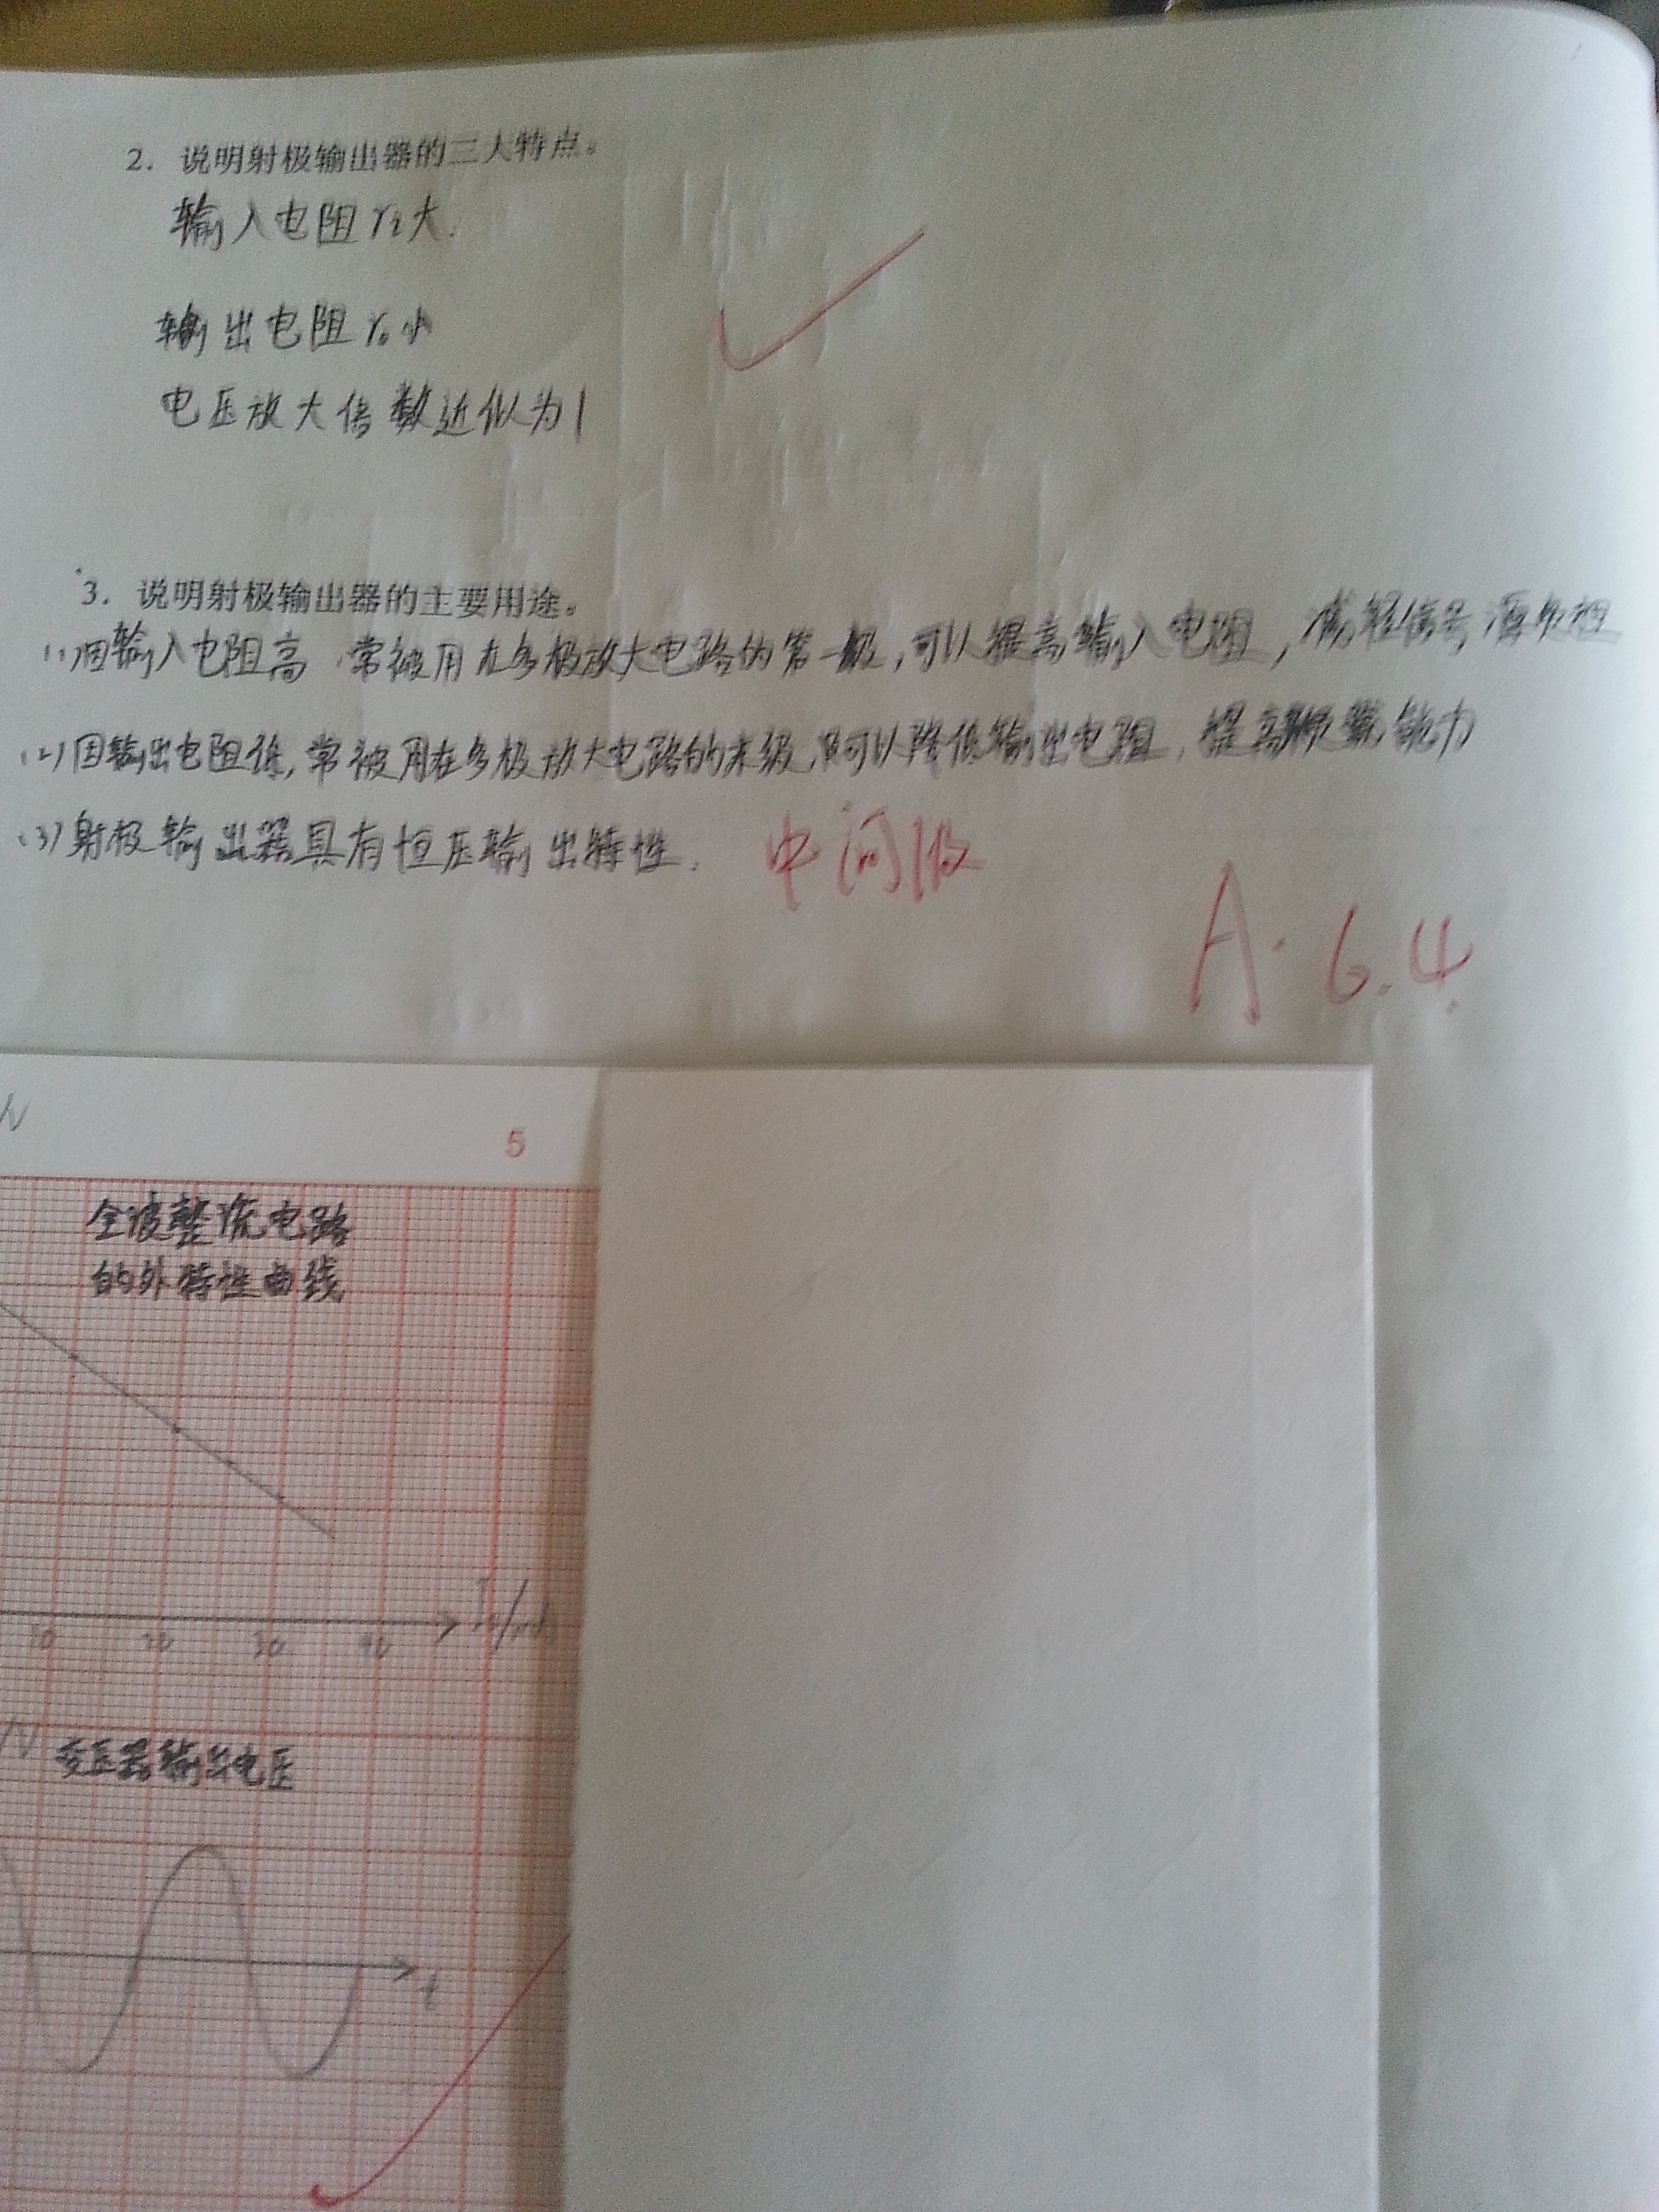 2. 说明射极输出器的三大特点。
输入电阻ri大.
输出电阻ro小
电压放大倍数近似为1
3. 说明射极输出器的主要用途。
(1)因输入电阻高 常被用在多极放大电路的第一级,可以提高输入电阻,减轻信号源负担
(2)因输出电阻低,常被用在多极放大电路的末级,可以降低输出电阻,提高带载能力
(3)射极输出器具有恒压输出特性.
中间级
A. 6.4.
/V
5
全波整流电路
的外特性曲线
10 20 30 40
/V
变压器输出电压
t